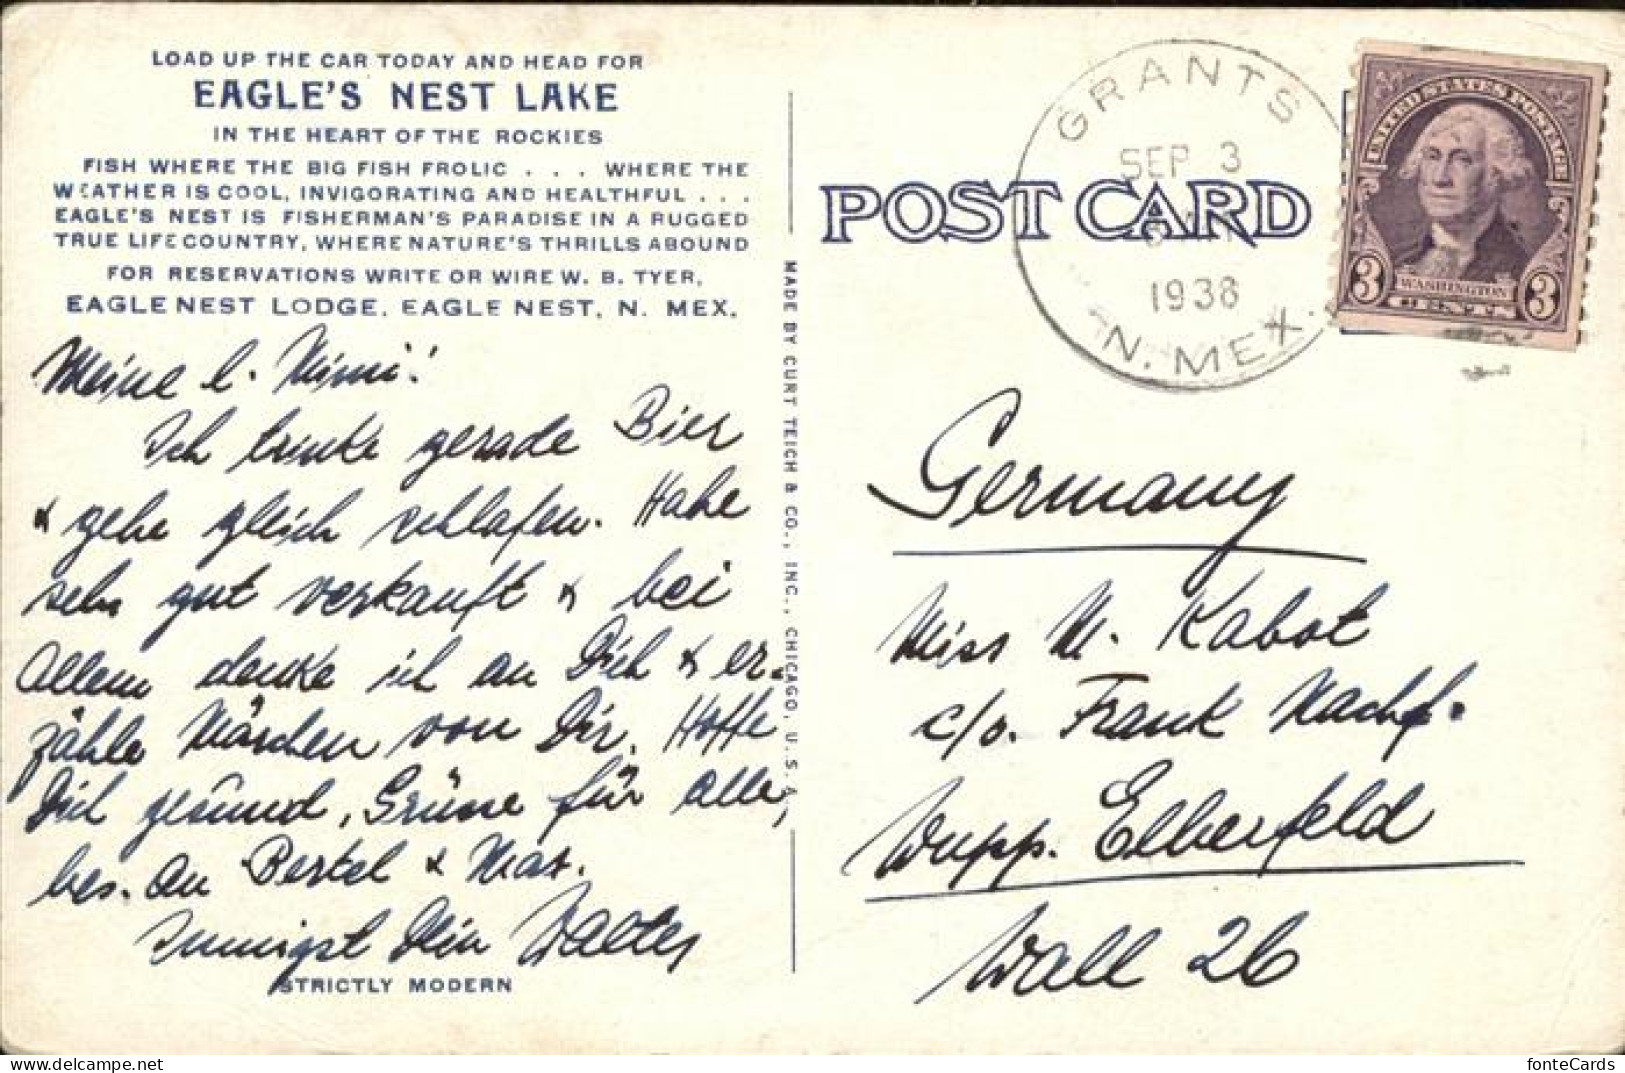 LOAD UP THE CAR TODAY AND HEAD FOR
EAGLE'S NEST LAKE
IN THE HEART OF THE ROCKIES
FISH WHERE THE BIG FISH FROLIC . . . WHERE THE
WEATHER IS COOL, INVIGORATING AND HEALTHFUL . . .
EAGLE'S NEST IS FISHERMAN'S PARADISE IN A RUGGED
TRUE LIFE COUNTRY, WHERE NATURE'S THRILLS ABOUND
FOR RESERVATIONS WRITE OR WIRE W. B. TYER,
EAGLE NEST LODGE, EAGLE NEST, N. MEX.
Meine l. Mimi!
Ich trinke gerade Bier
& gehe gleich schlafen. Habe
sehr gut verkauft & bei
Allem denke ich an Dich & er-
zähle Märchen von Dir. Hoffe
Dich gesund, Grüsse für alle,
bes. an Bertel & Max.
Innigst Dein Walter
STRICTLY MODERN
MADE BY CURT TEICH & CO., INC., CHICAGO, U.S.A.
POST CARD
GRANTS
SEP 3
1938
N. MEX.
UNITED STATES POSTAGE
WASHINGTON
3 CENTS 3
Germany
Miss M. Kabot
c/o. Frank Nachf.
Wupp. Elberfeld
Wall 26
fonteCards